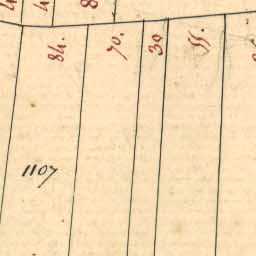 84.
70.
39
55.
1107